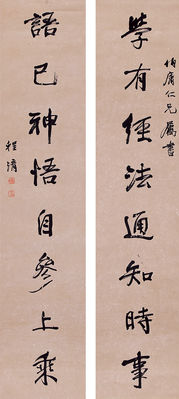 伯庸仁兄屬書
學有經法通知時事
語已神悟自參上乘
程濬